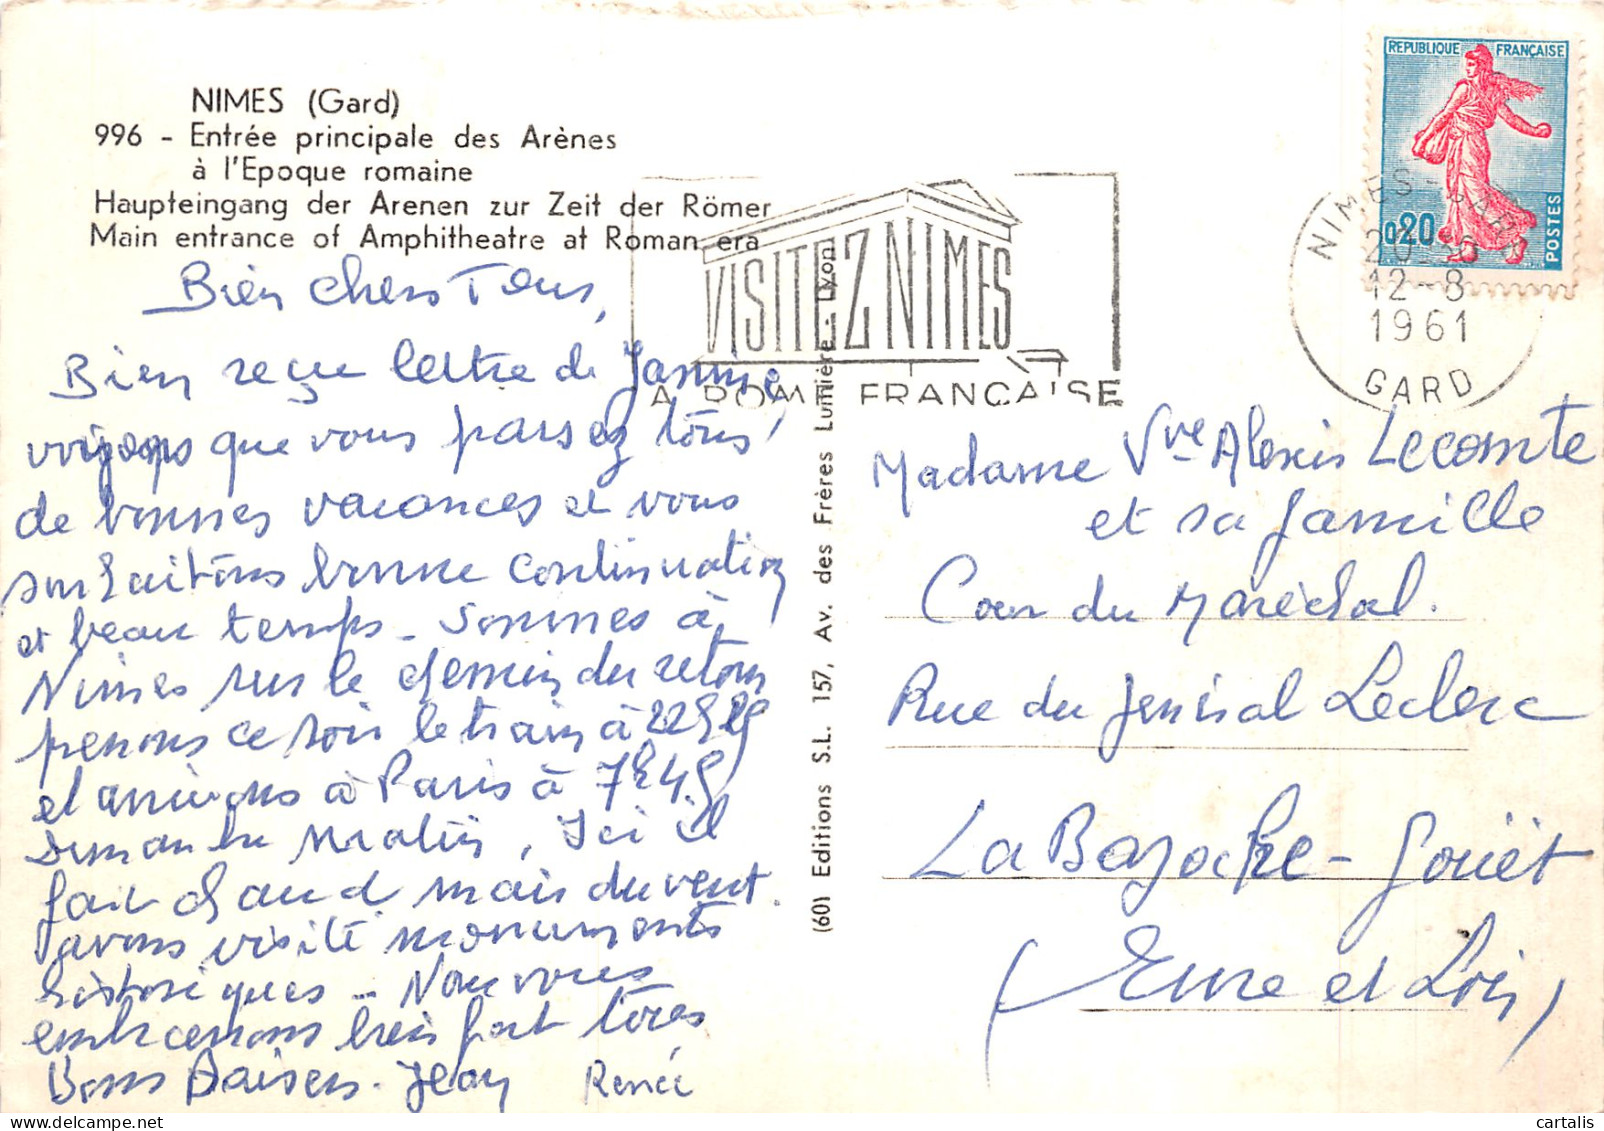 NIMES (Gard)
996 - Entrée principale des Arènes
à l'Epoque romaine
Haupteingang der Arenen zur Zeit der Römer
Main entrance of Amphitheatre at Roman era
Bien chers Tous,
Bien reçue lettre de Janine,
voyons que vous passez tous
de bonnes vacances et vous
souhaitons bonne continuation
et beau temps - Sommes à
Nimes sur le chemin du retour
penons ce soir le train à 22h29
et arrivons à Paris à 7h45
Dimanche matin, Ici il
fait chaud mais du vent.
avons visité monuments
historiques - Nous vous
embrassons bien fort tous
Bons Baisers. Jean Renée
(60) Editions S.L. 157, Av. des Frères Lumière - Lyon
VISITEZ NIMES
LA ROME FRANÇAISE
REPUBLIQUE FRANÇAISE
0,20
POSTES
NIMES-GARE
12-8
1961
GARD
Madame Vve Alexis Lecomte
et sa famille
Cour du Maréchal.
Rue du Général Leclerc
La Bazoche-Gouët
(Eure et Loir)
cartalis delcampe.net